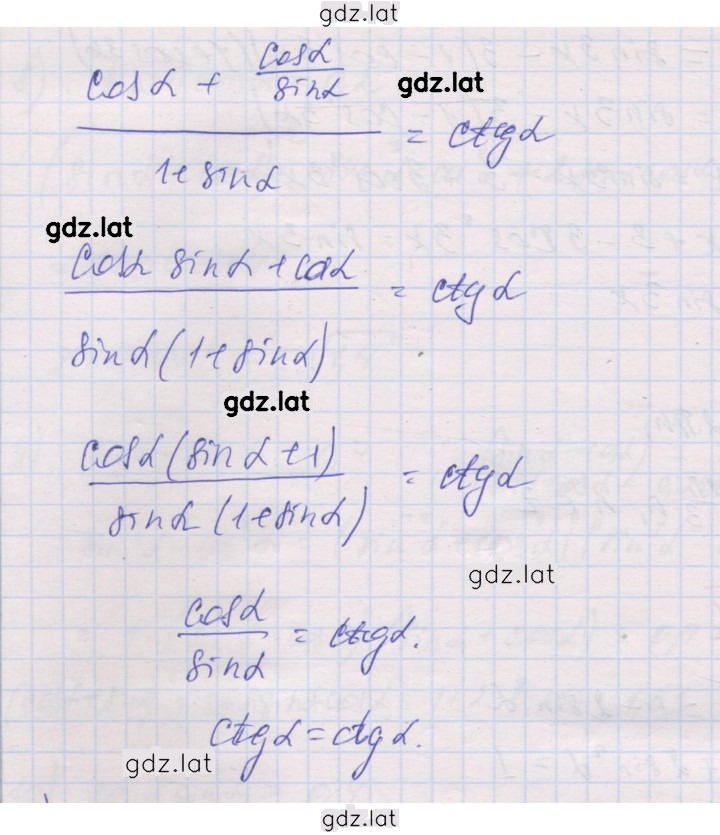 gdz.lat
(cos α + cos α / sin α) / (1 + sin α) = ctg α
gdz.lat
gdz.lat
(cos α sin α + cos α) / (sin α (1 + sin α)) = ctg α
gdz.lat
cos α (sin α + 1) / (sin α (1 + sin α)) = ctg α
gdz.lat
cos α / sin α = ctg α.
ctg α = ctg α.
gdz.lat
gdz.lat